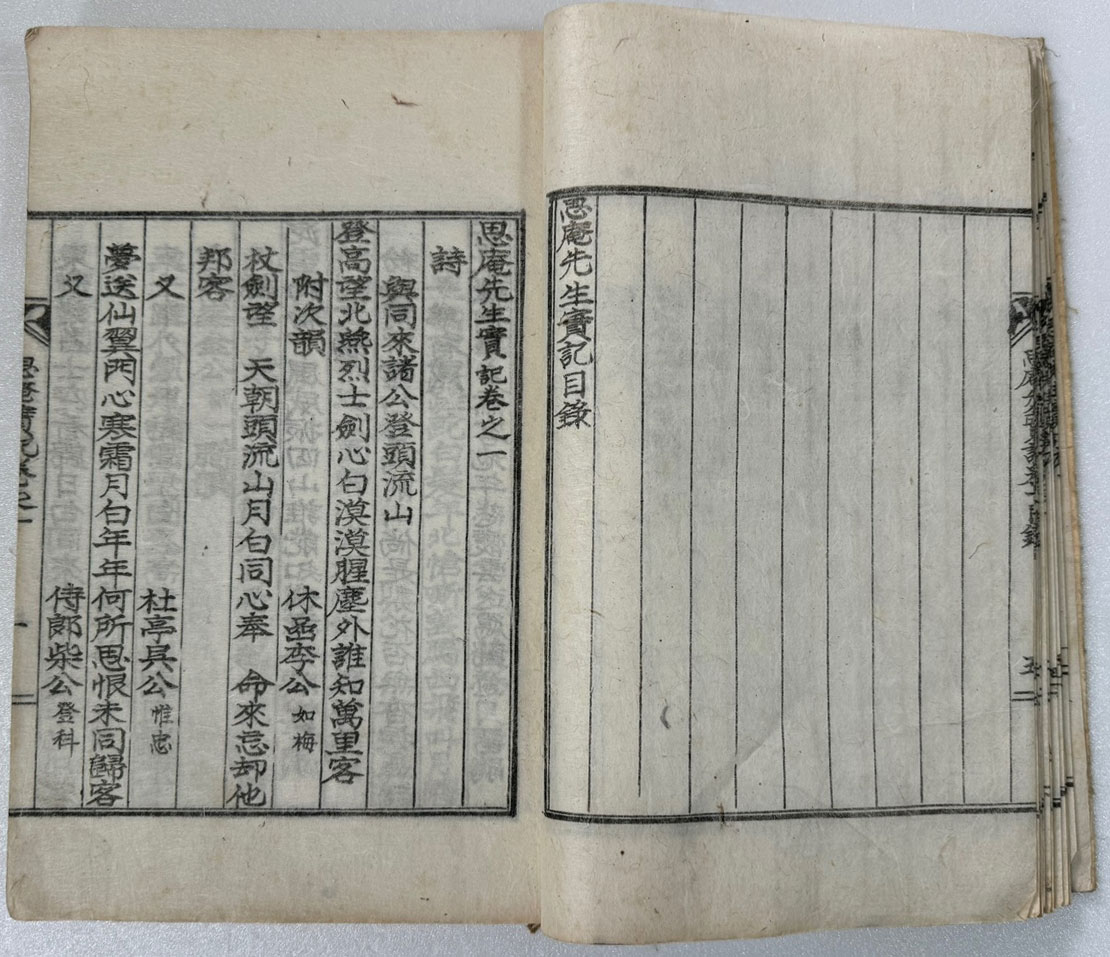 思庵先生實記目錄
思庵先生實記卷之一
詩
與同來諸公登頭流山
登高望北燕烈士劍心白漠漠腥塵外誰知萬里客
附次韻 休函李公 如梅
杖劍望 天朝頭流山月白同心奉 命來忘却他
邦客
又 杜亭吳公 惟忠
夢送仙翼門心寒霜月白年年何所思恨未同歸客
又 侍郎柴公 登科
思庵實記卷之一 一